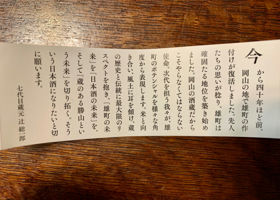 今から四十年ほど前、
岡山の地で雄町の作
付けが復活しました。先人
たちの思いが稔り、雄町は
確固たる地位を築き始め
ました。岡山の酒蔵だから
こそやらなくてはならない
使命、次代を担う我々が、雄
町のポテンシャルを様々な角
度から表現します。米と向
き合い、風土に耳を傾け、蔵
の歴史と伝統に最大限のリ
スペクトを抱き、「雄町の未
来」を「日本酒の未来」を、
そして「蔵のある勝山とい
う未来」を切り拓く、そう
いう日本酒になりたいと切
に願います。
七代目蔵元 辻 総一郎